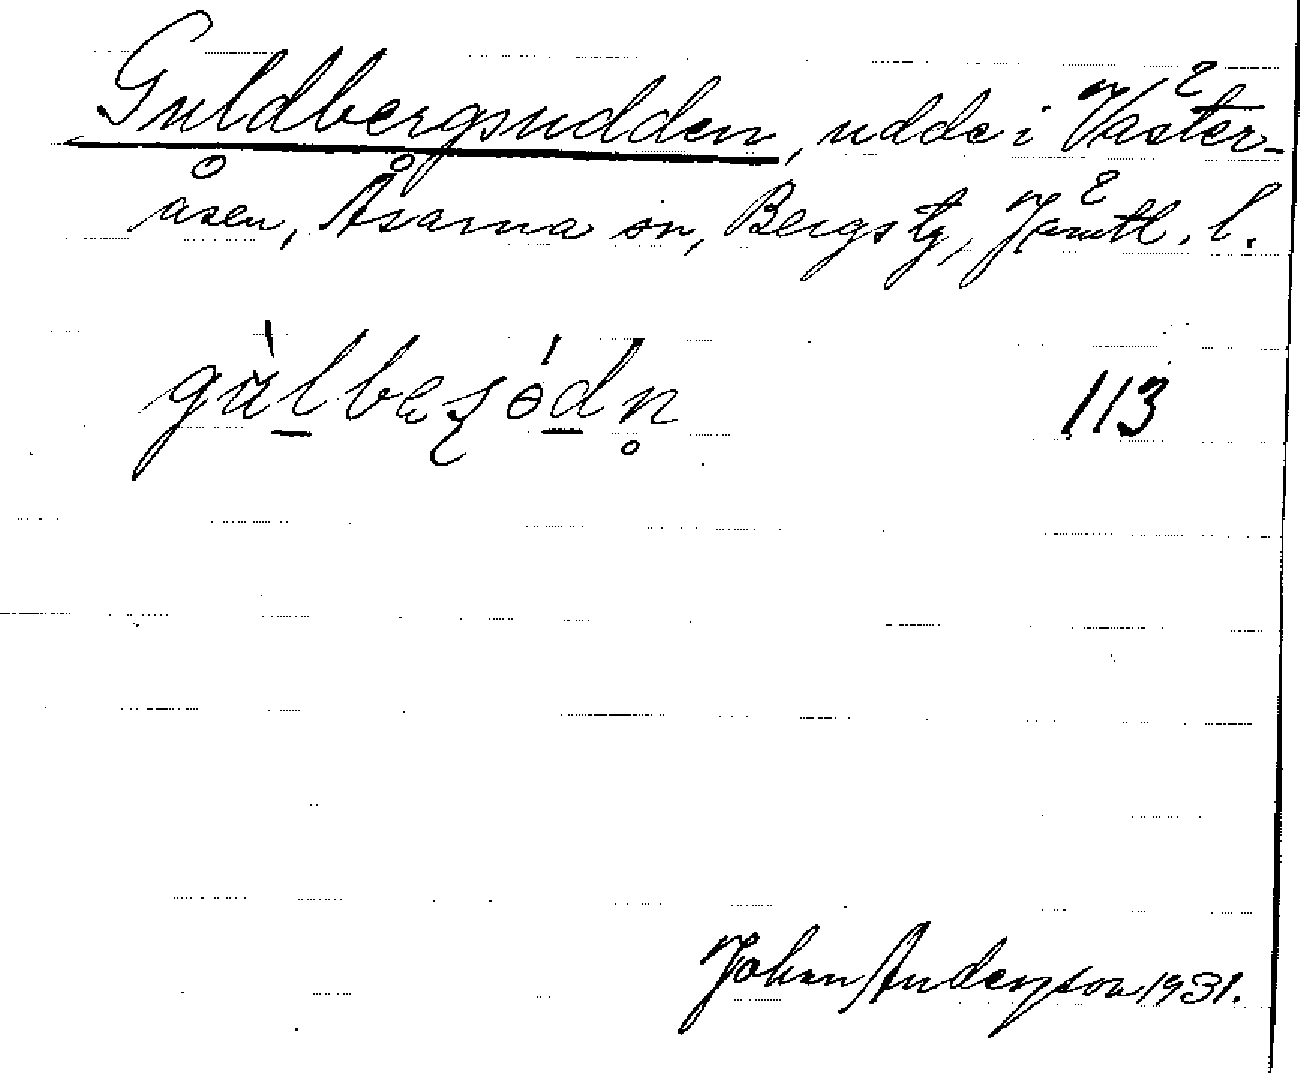 Guldbergsudden, udde i Väster-
åsen, Åsarna sn, Bergs tg, Jämtl. l.
113
Johan Anderson 1931.